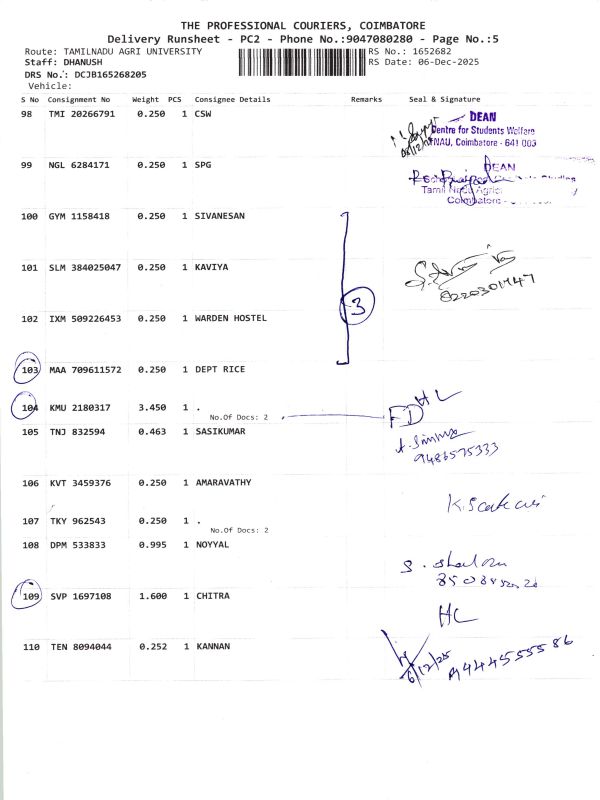 THE PROFESSIONAL COURIERS, COIMBATORE
Delivery Runsheet - PC2 - Phone No.:9047080280 - Page No.:5
Route: TAMILNADU AGRI UNIVERSITY RS No.: 1652682
Staff: DHANUSH RS Date: 06-Dec-2025
DRS No.: DCJB165268205
Vehicle:
S No Consignment No Weight PCS Consignee Details Remarks Seal & Signature
98 TMI 20266791 0.250 1 CSW
DEAN
Centre for Students Welfare
TNAU, Coimbatore - 641 003
99 NGL 6284171 0.250 1 SPG
DEAN
Studies
Tamil Nadu Agric
Coimbatore -
100 GYM 1158418 0.250 1 SIVANESAN
101 SLM 384025047 0.250 1 KAVIYA
8220301947
3
102 IXM 509226453 0.250 1 WARDEN HOSTEL
103 MAA 709611572 0.250 1 DEPT RICE
104 KMU 2180317 3.450 1 .
No.Of Docs: 2
FD HL
105 TNJ 832594 0.463 1 SASIKUMAR
9486575333
106 KVT 3459376 0.250 1 AMARAVATHY
107 TKY 962543 0.250 1 .
No.Of Docs: 2
108 DPM 533833 0.995 1 NOYYAL
109 SVP 1697108 1.600 1 CHITRA
HL
110 TEN 8094044 0.252 1 KANNAN
6/12/25
9444555586